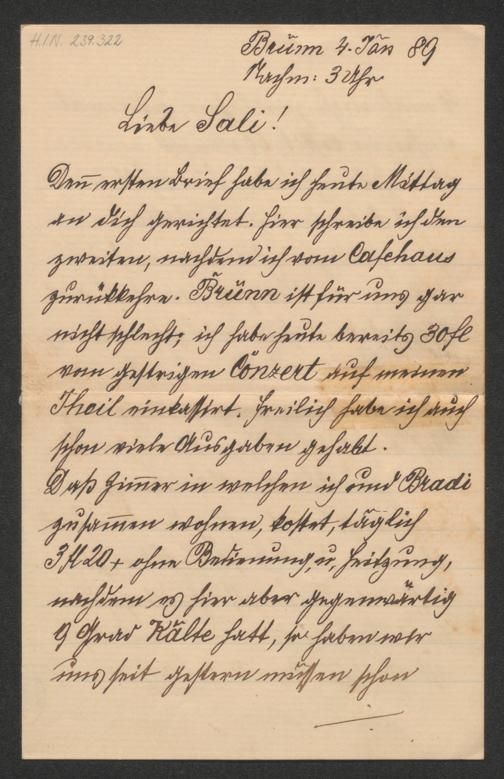 H.I.N. 239.322
Brünn 4. Jän 89
Nachm: 3 Uhr
Liebe Sali!
Den̅ ersten Brief habe ich heute Mittag
an dich gerichtet. Hier schreibe ich den
zweiten, nachdem ich vom Cafehaus
zurükkehre. Brünn ist für uns gar
nicht schlecht; ich habe heute bereits 30 fl
vom gestrigen Conzert auf meinen
Theil einkassirt. Freilich habe ich auch
schon viele Ausgaben gehabt.
Daß Zim̅er in welchen ich und Bradi
zusam̅en wohnen, kostet, täglich
3 fl 20 + ohne Bedienung, u, Heitzung,
nachdem es hier aber gegenwärtig
9 Grad Kälte hatt, so haben wir
uns seit gestern müssen schon